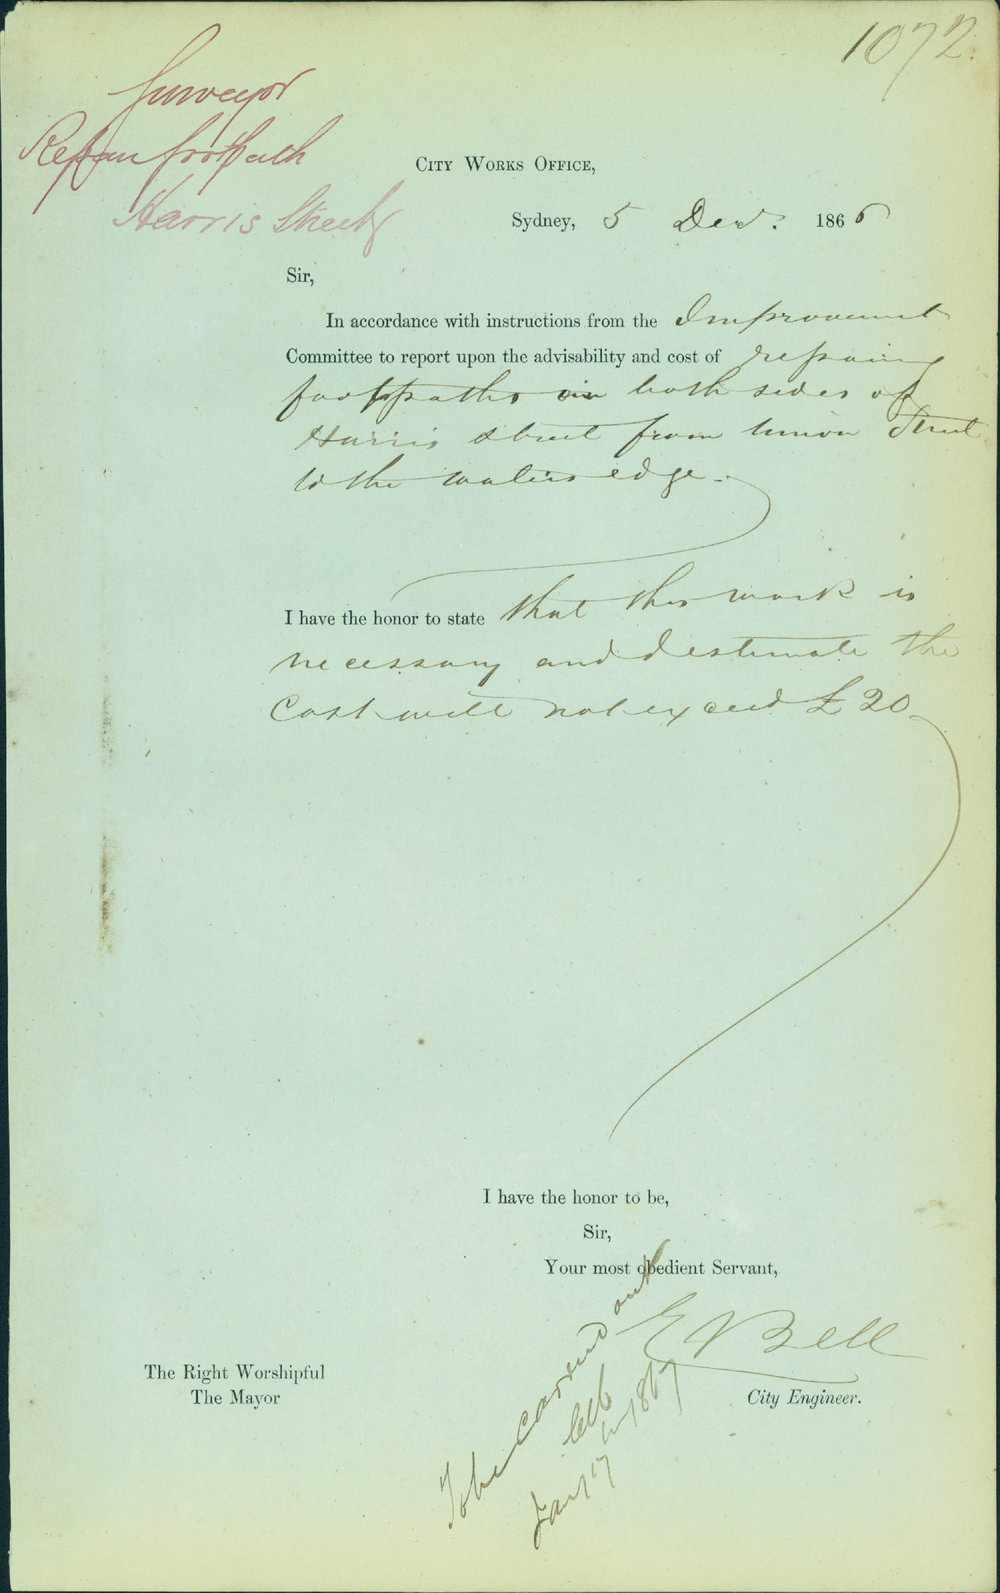 1072.
Surveyor
Repair footpath
Harris Street
CITY WORKS OFFICE,
Sydney, 5 Decr. 1866
Sir,
In accordance with instructions from the Improvement
Committee to report upon the advisability and cost of repairing
footpaths on both sides of
Harris Street from Union Street
to the waters edge.
I have the honor to state that this work is
necessary and I estimate the
Cost will not exceed £20
I have the honor to be,
Sir,
Your most obedient Servant,
E Bell
City Engineer.
The Right Worshipful
The Mayor
To be carried out
Jany 17th 1867